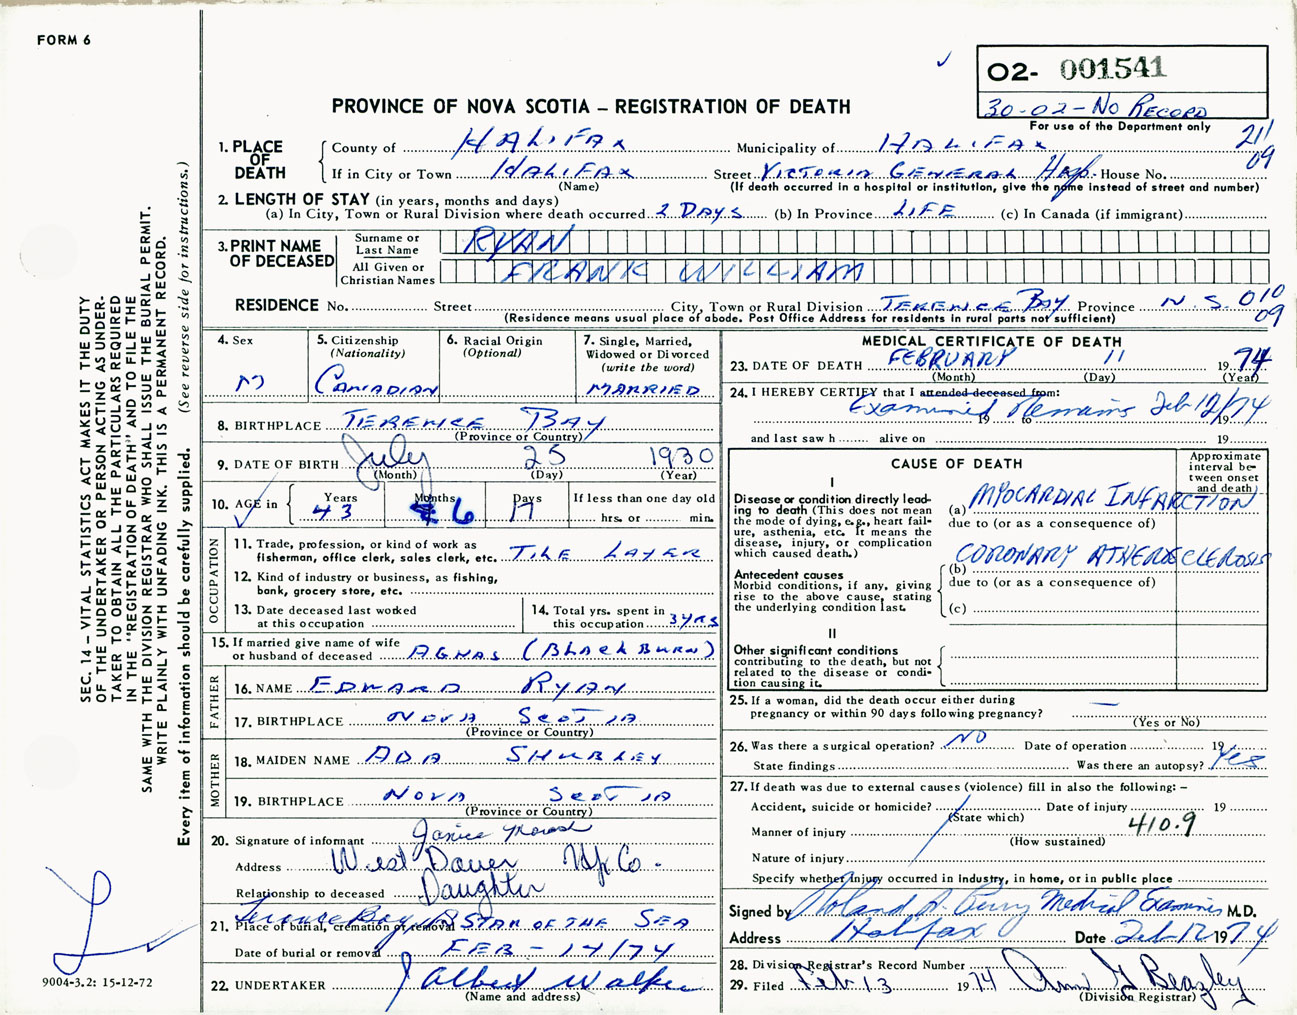 FORM 6
O2- 001541
30-02-NO RECORD
For use of the Department only
PROVINCE OF NOVA SCOTIA – REGISTRATION OF DEATH
211
09
1. PLACE OF DEATH
County of HALIFAX Municipality of HALIFAX
If in City or Town HALIFAX Street VICTORIA GENERAL Hosp. House No.
(Name) (If death occurred in a hospital or institution, give the name instead of street and number)
2. LENGTH OF STAY (in years, months and days)
(a) In City, Town or Rural Division where death occurred 2 DAYS (b) In Province LIFE (c) In Canada (if immigrant)
3. PRINT NAME OF DECEASED
Surname or Last Name RYAN
All Given or Christian Names FRANK WILLIAM
RESIDENCE No. Street City, Town or Rural Division TERENCE BAY Province N.S. 010
09
(Residence means usual place of abode. Post Office Address for residents in rural parts not sufficient)
4. Sex
M
5. Citizenship
(Nationality)
CANADIAN
6. Racial Origin
(Optional)
7. Single, Married,
Widowed or Divorced
(write the word)
MARRIED
8. BIRTHPLACE TERENCE BAY
(Province or Country)
9. DATE OF BIRTH July 25 1930
(Month) (Day) (Year)
10. AGE in Years Months Days If less than one day old
43 6 17 hrs. or min.
OCCUPATION
11. Trade, profession, or kind of work as
fisherman, office clerk, sales clerk, etc. TILE LAYER
12. Kind of industry or business, as fishing,
bank, grocery store, etc.
13. Date deceased last worked
at this occupation
14. Total yrs. spent in
this occupation 3 YRS
15. If married give name of wife
or husband of deceased AGNAS (BLACKBURN)
FATHER
16. NAME EDWARD RYAN
17. BIRTHPLACE NOVA SCOTIA
(Province or Country)
MOTHER
18. MAIDEN NAME ADA SHURLEY
19. BIRTHPLACE NOVA SCOTIA
(Province or Country)
20. Signature of informant Janice
Address West Dover Hfx Co.
Relationship to deceased Daughter
21. Place of burial, cremation or removal Terence Bay STAR OF THE SEA
Date of burial or removal FEB - 14/74
22. UNDERTAKER J Albert Walker
(Name and address)
MEDICAL CERTIFICATE OF DEATH
23. DATE OF DEATH FEBRUARY 11 1974
(Month) (Day) (Year)
24. I HEREBY CERTIFY that I attended deceased from:
Examined Remains Feb 12/74
19 to 19
and last saw h alive on 19
CAUSE OF DEATH
Approximate
interval be-
tween onset
and death
I
Disease or condition directly lead-
ing to death (This does not mean
the mode of dying, e.g., heart fail-
ure, asthenia, etc. It means the
disease, injury, or complication
which caused death.)
(a) MYOCARDIAL INFARCTION
due to (or as a consequence of)
Antecedent causes
Morbid conditions, if any, giving
rise to the above cause, stating
the underlying condition last.
(b) CORONARY ATHEROSCLEROSIS
due to (or as a consequence of)
(c)
II
Other significant conditions
contributing to the death, but not
related to the disease or condi-
tion causing it.
25. If a woman, did the death occur either during
pregnancy or within 90 days following pregnancy? —
(Yes or No)
26. Was there a surgical operation? NO Date of operation 19
State findings Was there an autopsy? Yes
27. If death was due to external causes (violence) fill in also the following: –
Accident, suicide or homicide? Date of injury 19
(State which)
Manner of injury 410.9
(How sustained)
Nature of injury
Specify whether injury occurred in industry, in home, or in public place
Signed by Roland A. Perry Medical Examiner M.D.
Address Halifax Date Feb 12 1974
28. Division Registrar's Record Number
29. Filed Feb 13 1974 Ann G Beazley
(Division Registrar)
SEC. 14 – VITAL STATISTICS ACT MAKES IT THE DUTY
OF THE UNDERTAKER OR PERSON ACTING AS UNDER-
TAKER TO OBTAIN ALL THE PARTICULARS REQUIRED
IN THE "REGISTRATION OF DEATH" AND TO FILE THE
SAME WITH THE DIVISION REGISTRAR WHO SHALL ISSUE THE BURIAL PERMIT.
WRITE PLAINLY WITH UNFADING INK. THIS IS A PERMANENT RECORD.
Every item of information should be carefully supplied. (See reverse side for instructions.)
9004-3.2: 15-12-72